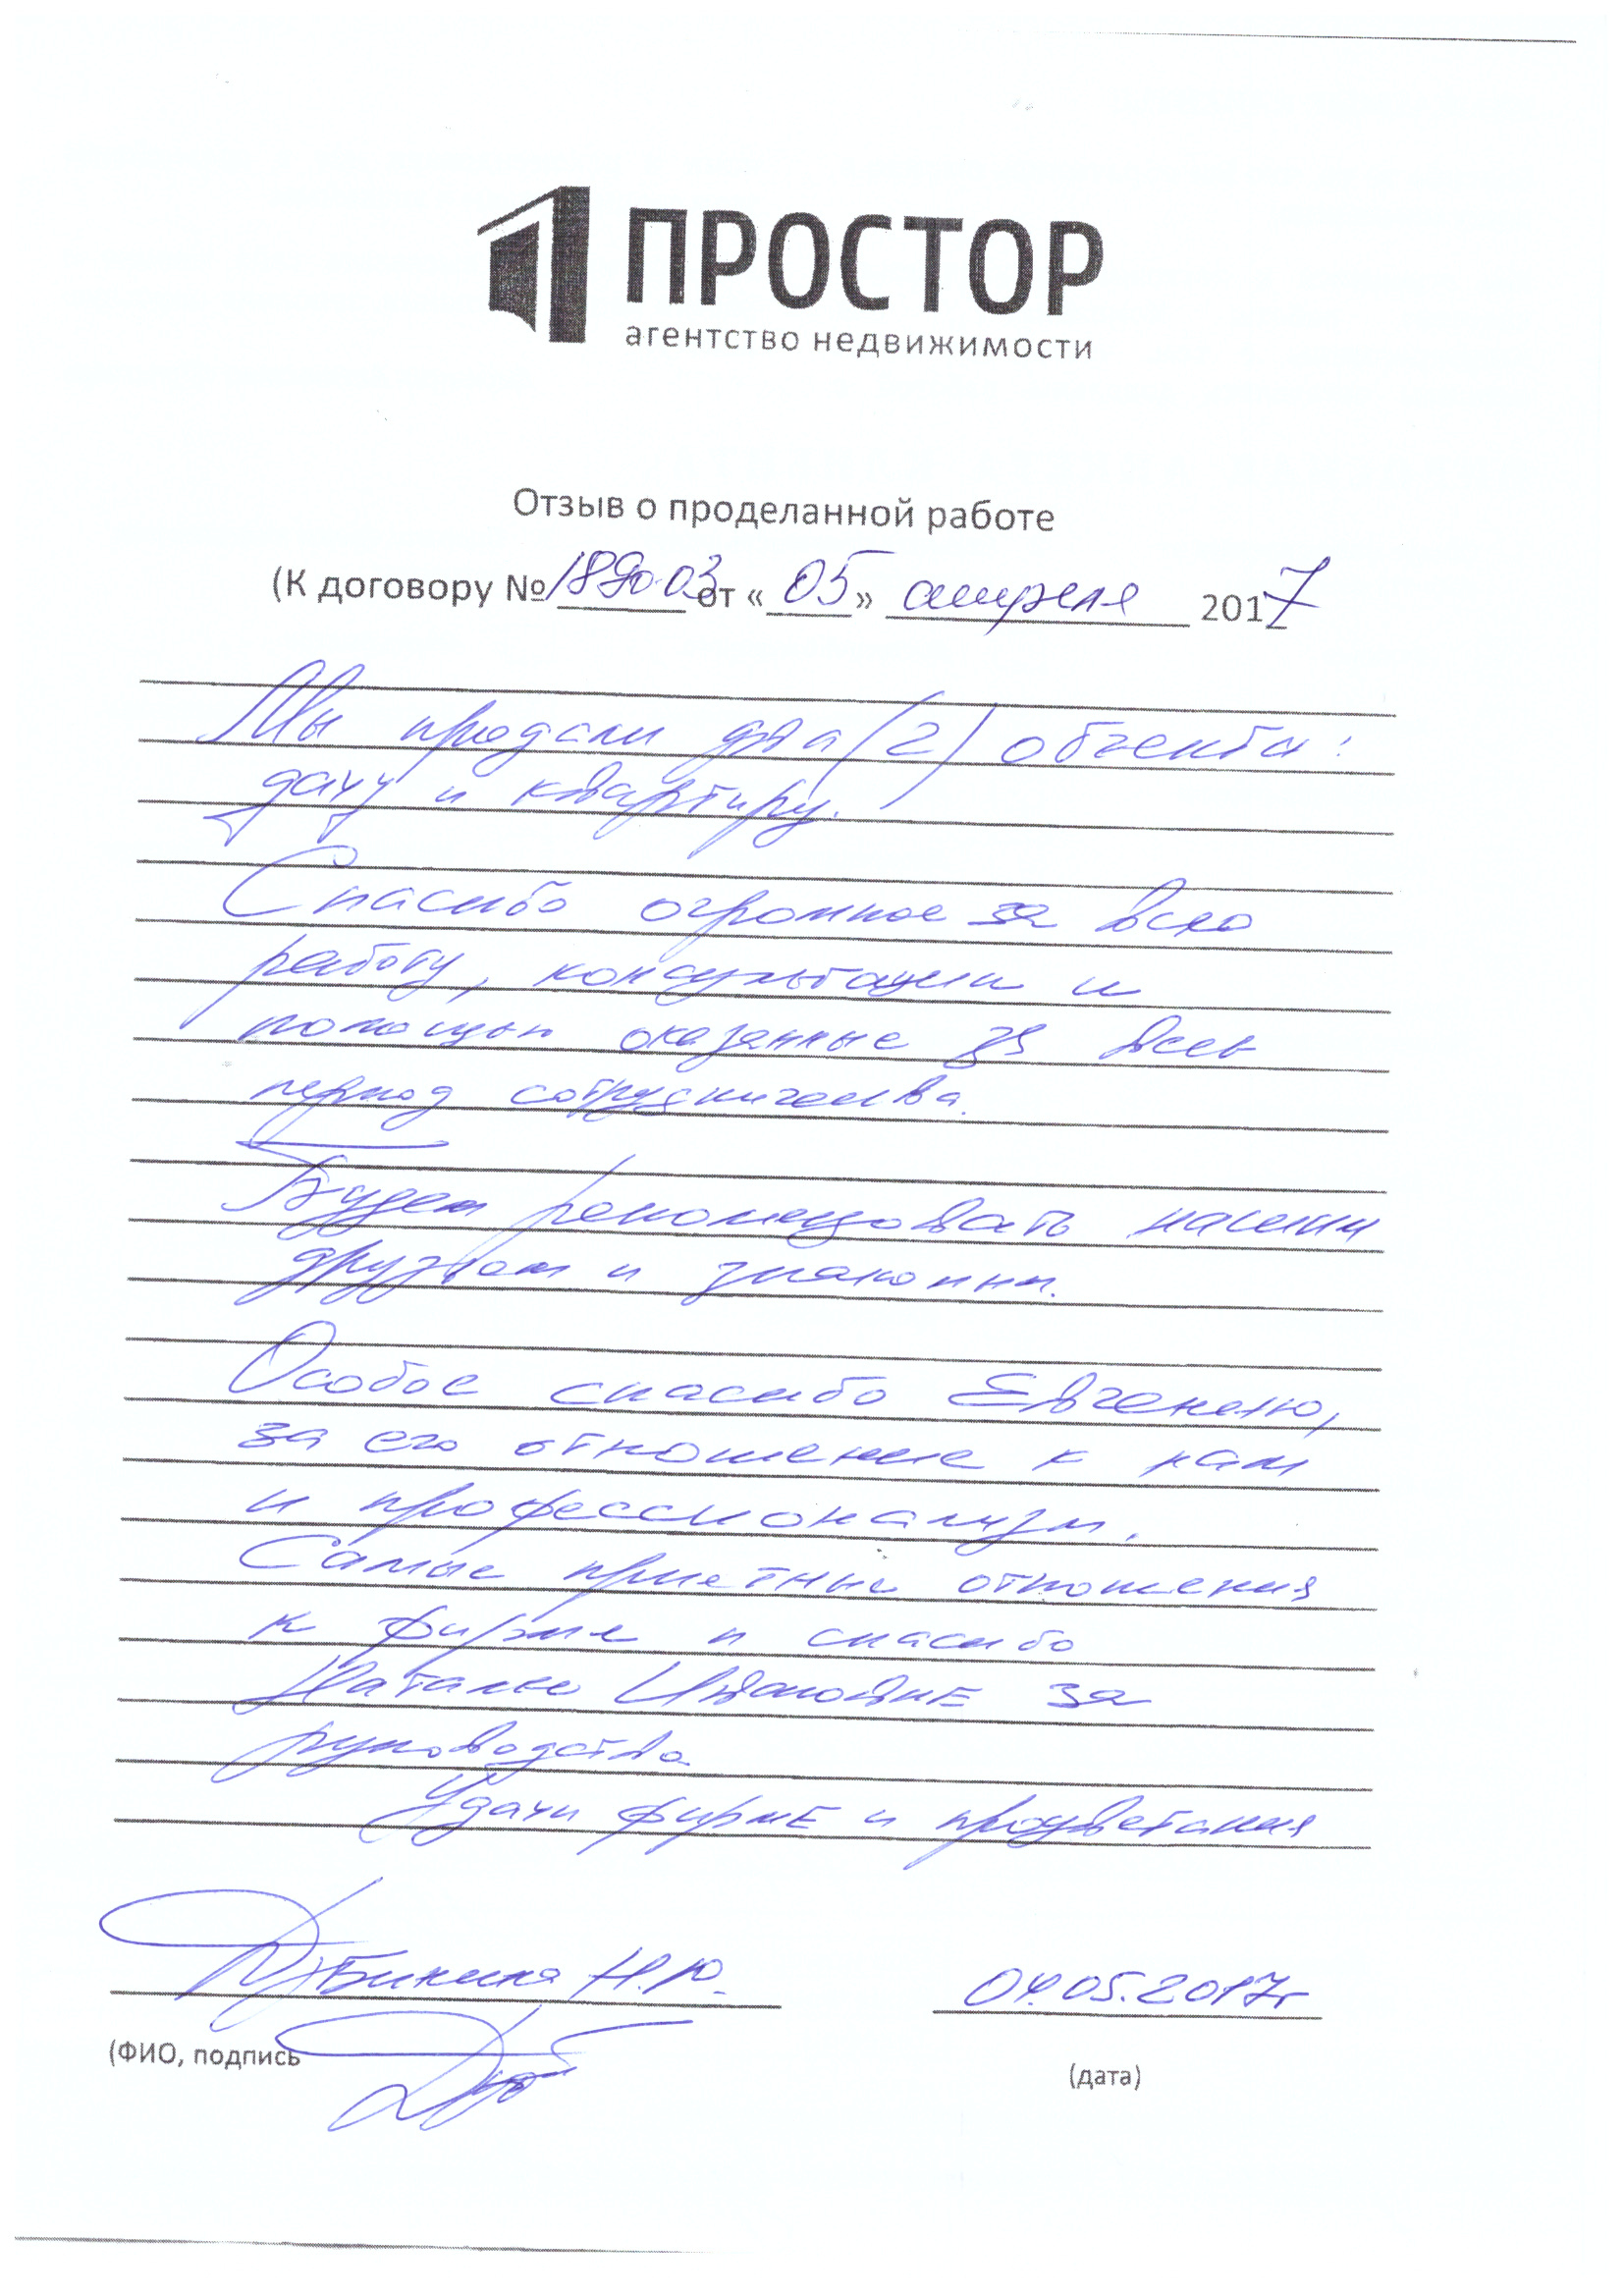 ПРОСТОР
агентство недвижимости
Отзыв о проделанной работе
(К договору № от «05» апреля 2017
Мы продали два (2) объекта:
дачу и квартиру.
Спасибо огромное за всю
работу, консультации и
помощь оказанные за весь
период сотрудничества.
Будем рекомендовать нашим
друзьям и знакомым.
Особое спасибо Евгению,
за его отношение к нам
и профессионализм.
Самые приятные отношения
к фирме и спасибо
Наталье Ивановне за
руководство
Удачи фирме и процветания
Н.Ю.
04.05.2017г
(ФИО, подпись
(дата)